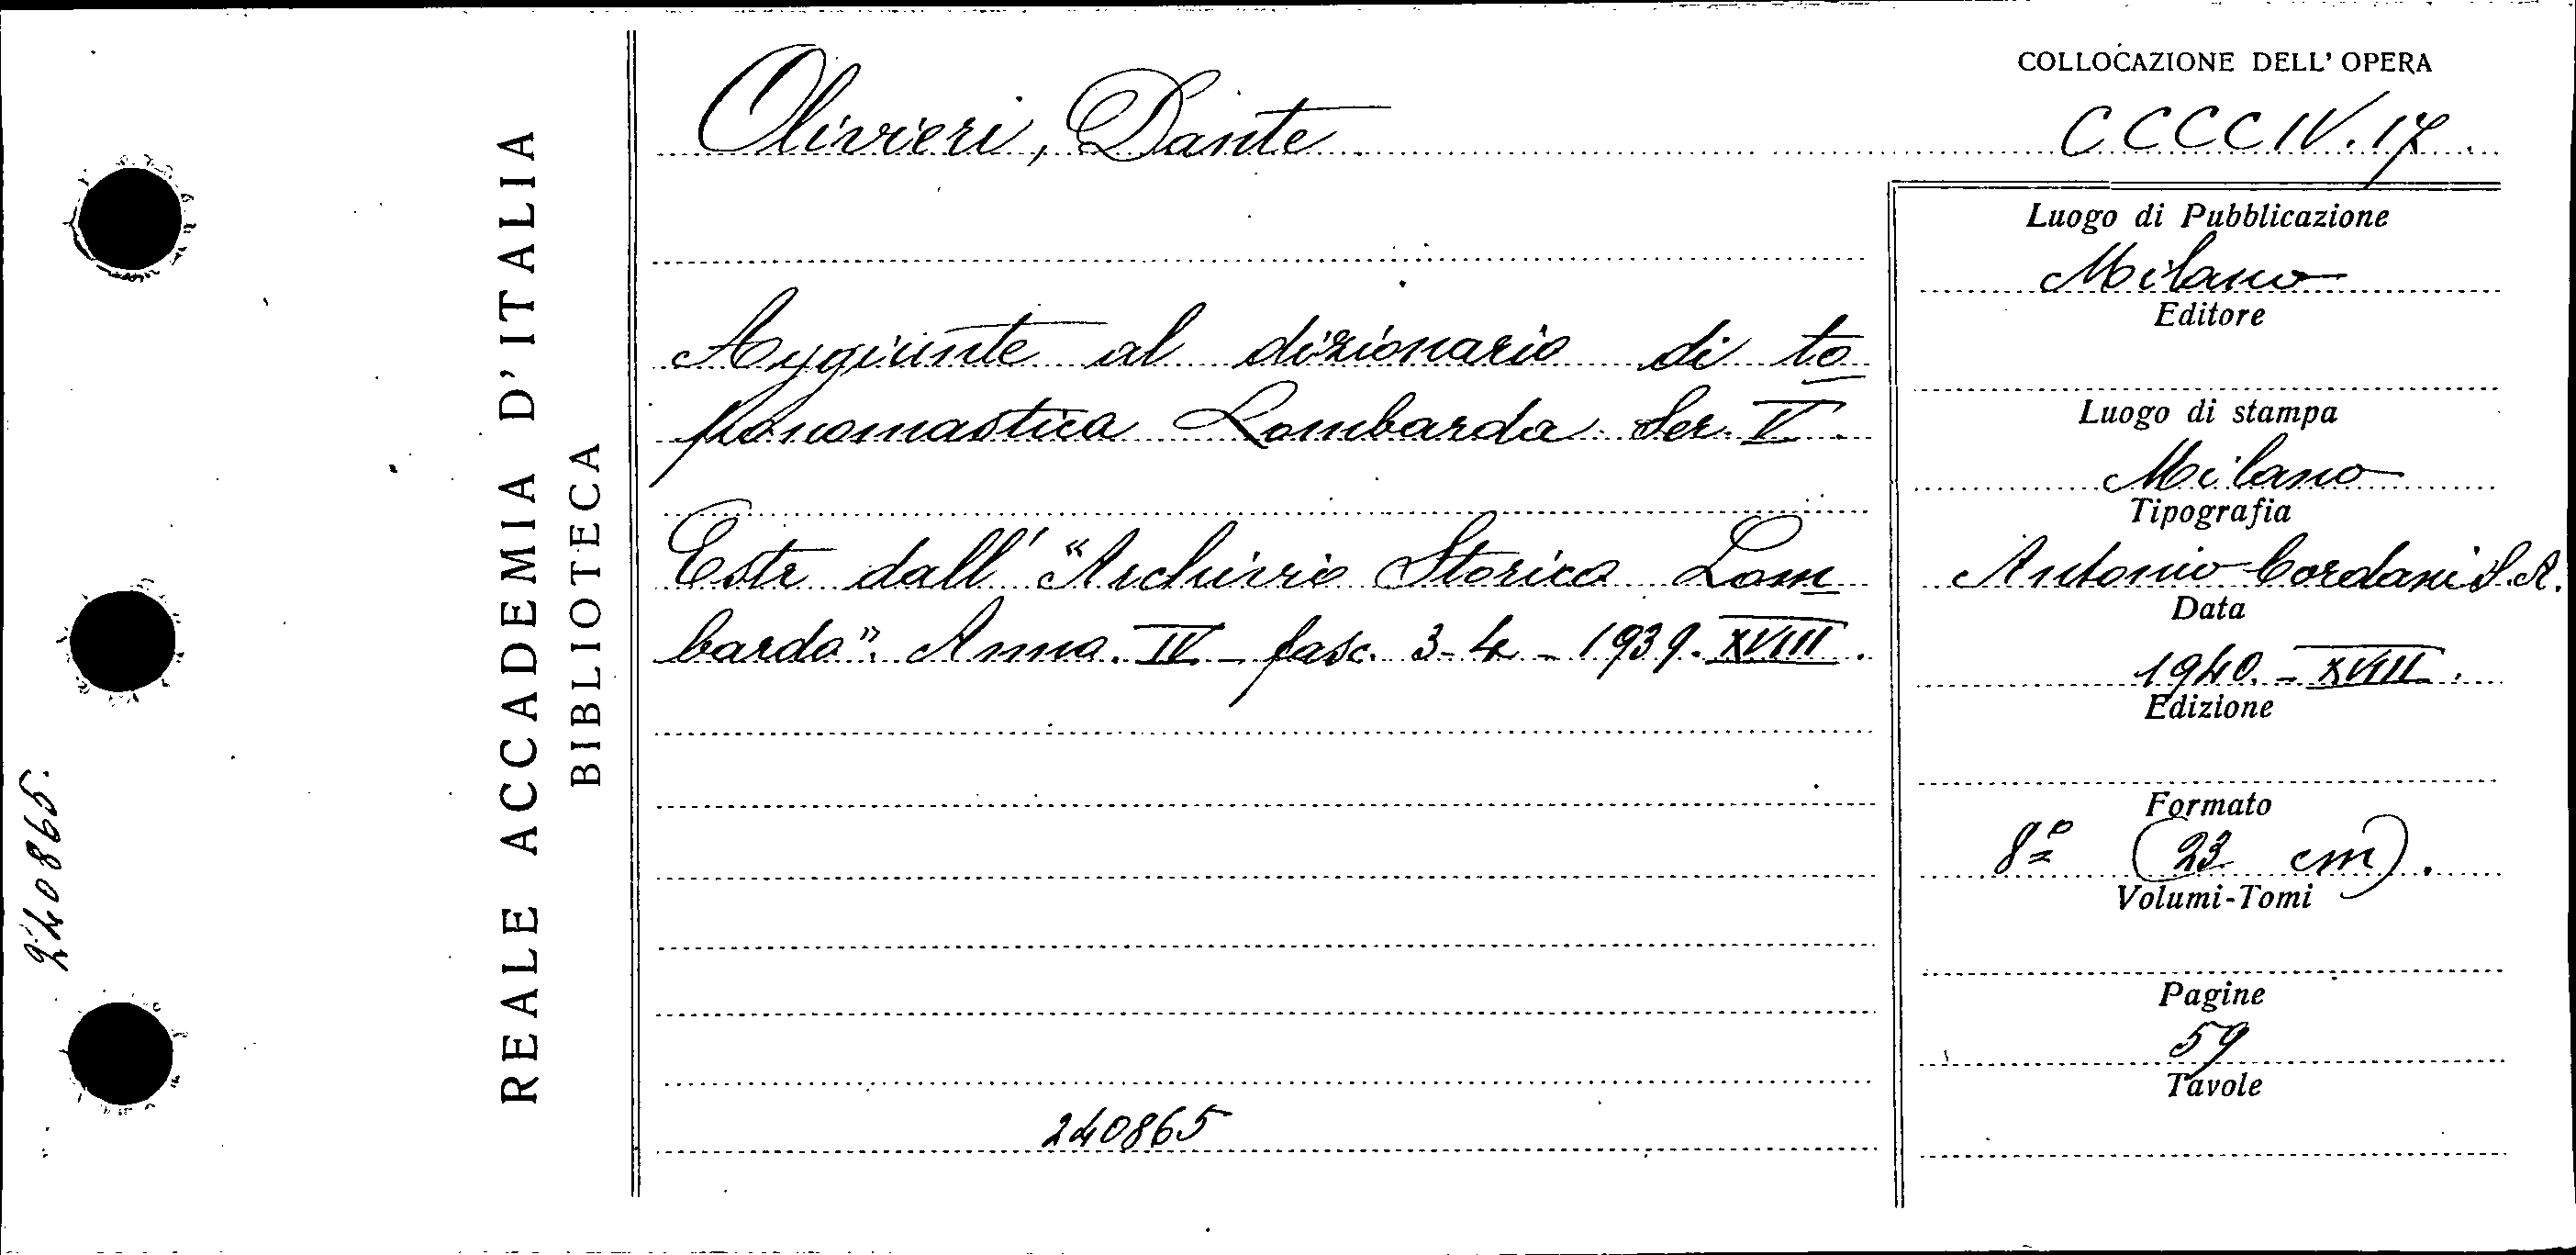 Olivieri, Dante
Aggiunte al dizionario di to
ponomastica Lombarda Ser. V.
Estr dall' "Archivio Storico Lom
bardo". Anno. IV - fasc. 3-4 - 1939. XVIII.
240865
COLLOCAZIONE DELL' OPERA
CCCCIV.17.
Luogo di Pubblicazione
Milano
Editore
Luogo di stampa
Milano
Tipografia
Antonio Cordani S.A.
Data
1940. - XVIII.
Edizione
Formato
8º (23 cm).
Volumi-Tomi
Pagine
59
Tavole
REALE ACCADEMIA D'ITALIA
BIBLIOTECA
240865.